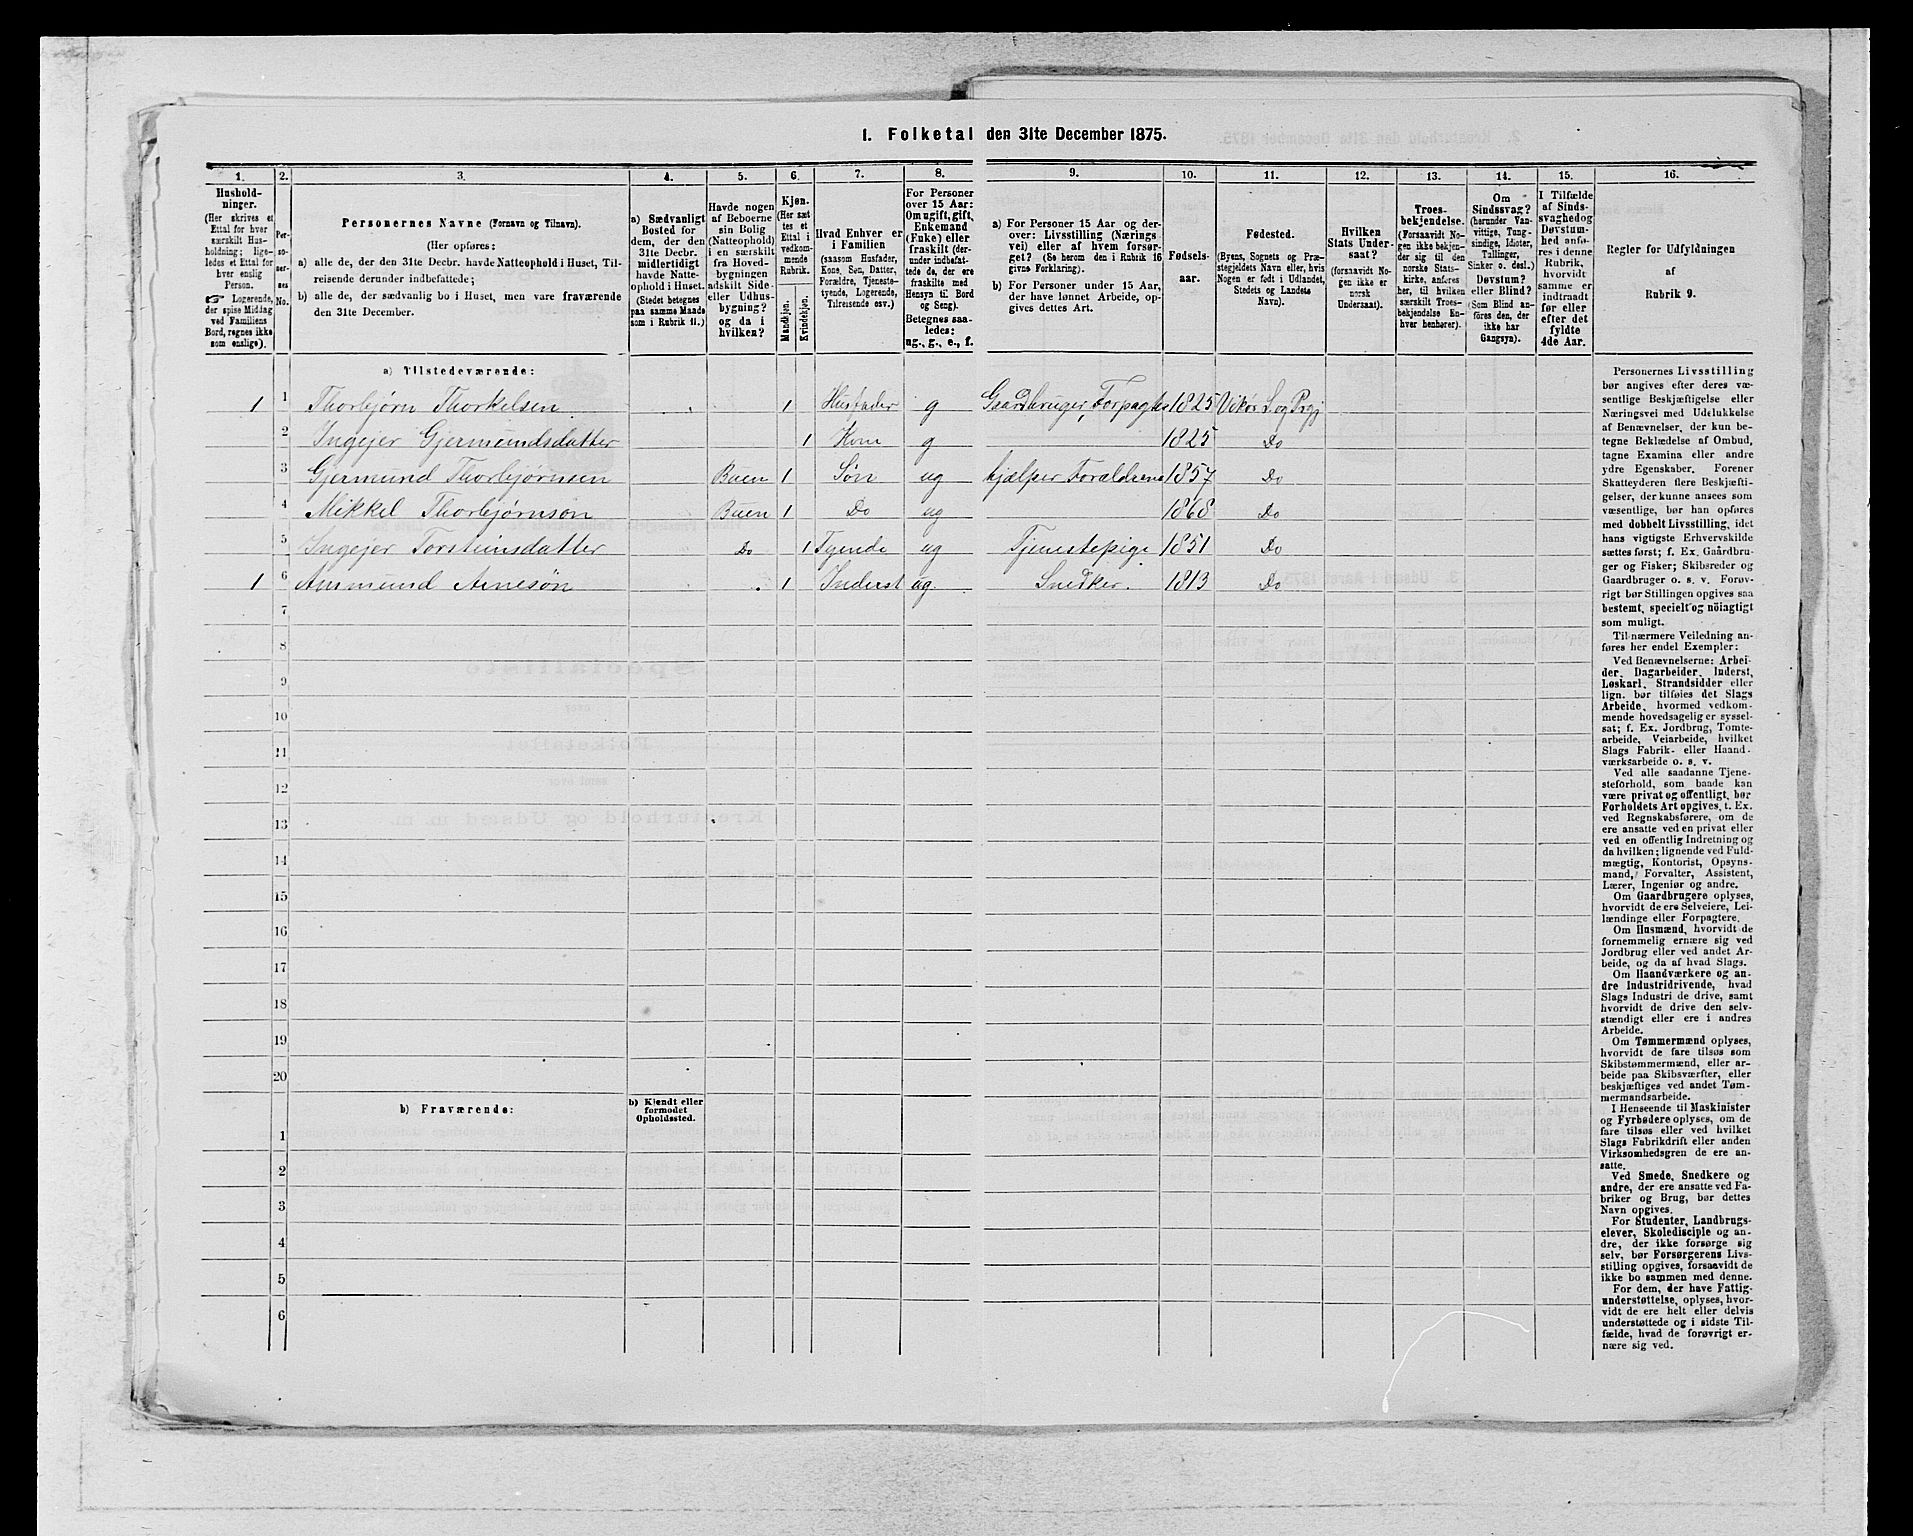 1. Folketal den 31te December 1875.
1. 2. 3. 4. 5. 6. 7. 8. 9. 10. 11. 12. 13. 14. 15. 16.
Hushold-
ninger.
(Her skrives et
Ettal for hver
særskilt Hus-
holdning; lige-
ledes et Ettal for
hver enslig
Person.
☞ Logerende,
der spise Middag
ved Familiens
Bord, regnes ikke
som enslige).
Per-
so-
ner-
nes
No.
Personernes Navne (Fornavn og Tilnavn).
(Her opføres:
a) alle de, der den 31te Decbr. havde Natteophold i Huset, Til-
reisende derunder indbefattede;
b) alle de, der sædvanlig bo i Huset, men vare fraværende
den 31te December.
a) Sædvanligt
Bosted for
dem, der den
31te Decbr.
midlertidigt
havde Natte-
ophold i Huset.
(Stedet betegnes
paa samme Maade
som i Rubrik 11.)
Havde nogen
af Beboerne
sin Bolig
(Natteophold)
i en særskilt
fra Hoved-
bygningen
adskilt Side-
eller Udhus-
bygning?
og da i
hvilken?
Kjøn.
(Her sæt
tes et
Ettal i
vedkom-
mende
Rubrik.
Mandkjøn.
Kvindekjøn.
Hvad Enhver er
i Familien
(saasom Husfader,
Kone, Søn, Datter,
Forældre, Tjeneste-
tyende, Logerende,
Tilreisende osv.)
For Personer
over 15 Aar:
Om ugift, gift,
Enkemand
(Enke) eller
fraskilt (der-
under indbefat-
tede de, der ere
fraskilte med
Hensyn til Bord
og Seng).
Betegnes saa-
ledes:
ug., g., e., f.
a) For Personer 15 Aar og der-
over: Livsstilling (Nærings-
vei) eller af hvem forsør-
get? (Se herom den i Rubrik 16
givne Forklaring).
b) For Personer under 15 Aar,
der have lønnet Arbeide, op-
gives dettes Art.
Fødsels-
aar.
Fødested.
(Byens, Sognets og Præ-
stegjeldets Navn eller, hvis
Nogen er født i Udlandet,
Stedets og Landets
Navn).
Hvilken
Stats Under-
saat?
(forsaavidt No-
gen ikke er
norsk
Undersaat).
Troes-
bekjendelse.
(Forsaavidt No-
gen ikke bekjen-
der sig til den
norske Stats-
kirke, anføres
her, til hvilken
særskilt Troes-
bekjendelse En-
hver henhører).
Om
Sindssvag?
(herunder Van-
vittige, Tung-
sindige, Idioter,
Tullinger,
Sinker o. desl.)
Døvstum?
eller Blind?
(Som Blind an-
føres den, der
ikke har
Gangsyn).
I Tilfælde
af Sinds-
svaghed og
Døvstum-
hed anfø-
res i denne
Rubrik,
hvorvidt
samme er
indtraadt
før eller
efter det
fyldte
4de Aar.
Regler for Udfyldningen
af
Rubrik 9.
a) Tilstedeværende:
1 1 Thorbjørn Thorkelsen 1 Husfader g Gaardbruger, Forpagter 1825 Vikør S. og Prgj
2 Ingejer Gjermundsdatter 1 Kone g 1825 Do
3 Gjermund Thorbjørnsen Buen 1 Søn ug hjælper Forældrene 1857 Do
4 Mikkel Thorbjørnsøn Buen 1 Do ug 1868 Do
5 Ingejer Torsteinsdatter Do 1 Tyende ug Tjenestepige 1851 Do
1 6 Ammund Arnesøn 1 Inderst ug. Snedker. 1813 Do
7
8
9
10
11
12
13
14
15
16
17
18
19
20
b) Fraværende:
b) Kjendt eller
formodet
Opholdssted.
1
2
3
4
5
6
Personernes Livsstilling
bør angives efter deres væ-
sentlige Beskjæftigelse eller
Næringsvei med Udelukkelse
af Benævnelser, der kun be-
tegne Beklædelse af Ombud,
tagne Examina eller andre
ydre Egenskaber. Forener
Skatteyderen flere Beskjæfti-
gelser, der kunne ansees som
væsentlige, bør han opføres
med dobbelt Livsstilling, idet
hans vigtigste Erhvervskilde
sættes først; f. Ex. Gaardbru-
ger og Fisker; Skibsreder og
Gaardbruger o. s. v. Forøv-
rigt bør Stillingen opgives saa
bestemt, specielt og nöiagtigt
som muligt.
Til nærmere Veiledning an-
føres her endel Exempler:
Ved Benævnelserne: Arbei-
der, Dagarbeider, Inderst,
Løskarl, Strandsidder eller
lign. bør tilføies det Slags
Arbeide, hvormed vedkom-
mende hovedsagelig er syssel-
sat; f. Ex. Jordbrug, Tomte-
arbeide, Veiarbeide, hvilket
Slags Fabrik- eller Haand-
værksarbeide o. s. v.
Ved alle saadanne Tjene-
steforhold, som baade kan
være privat og offentligt, bør
Forholdets Art opgives, t. Ex.
ved Regnskabsførere, om de
ere ansatte ved en privat eller
ved en offentlig Indretning og
da hvilken; lignende ved Fuld-
mægtig, Kontorist, Opsyns-
mand, Forvalter, Assistent,
Lærer, Ingeniør og andre.
Om Gaardbrugere oplyses,
hvorvidt de ere Selveiere, Lei-
lændinge eller Forpagtere.
Om Husmænd, hvorvidt de
fornemmelig ernære sig ved
Jordbrug eller ved andet Ar-
beide, og da af hvad Slags.
Om Haandværkere og an-
dre Industridrivende, hvad
Slags Industri de drive, samt
hvorvidt de drive den selv-
stændigt eller ere i andres
Arbeide.
Om Tømmermænd oplyses,
hvorvidt de fare tilsøs som
Skibstømmermænd, eller ar-
beide paa Skibsværfter, eller
beskjæftiges ved andet Tøm-
mermandsarbeide.
I Henseende til Maskinister
og Fyrbødere oplyses, om de
fare tilsøs eller ved hvilket
Slags Fabrikdrift eller anden
Virksomhedsgren de ere an-
satte.
Ved Smede, Snedkere og
andre, der ere ansatte ved Fa-
briker og Brug, bør dettes
Navn opgives.
For Studenter, Landbrugs-
elever, Skoledisciple og an-
dre, der ikke forsørge sig
selv, bør Forsørgerens Livs-
stilling opgives, forsaavidt de
ikke bo sammen med denne.
For dem, der have Fattig-
understøttelse, oplyses, hvor-
vidt de ere helt eller delvis
understøttede og i sidste Til-
fælde, hvad de forøvrigt er-
nære sig ved.